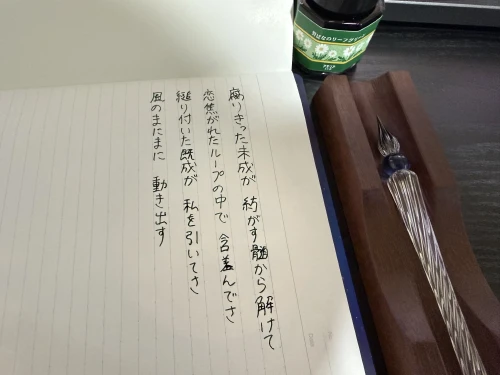 腐りきった未成が 紡がす髄から 解けて
恋焦がれたループの中で 含羞んでさ
縋り付いた既成が 私を引いてさ
風のまにまに 動き出す